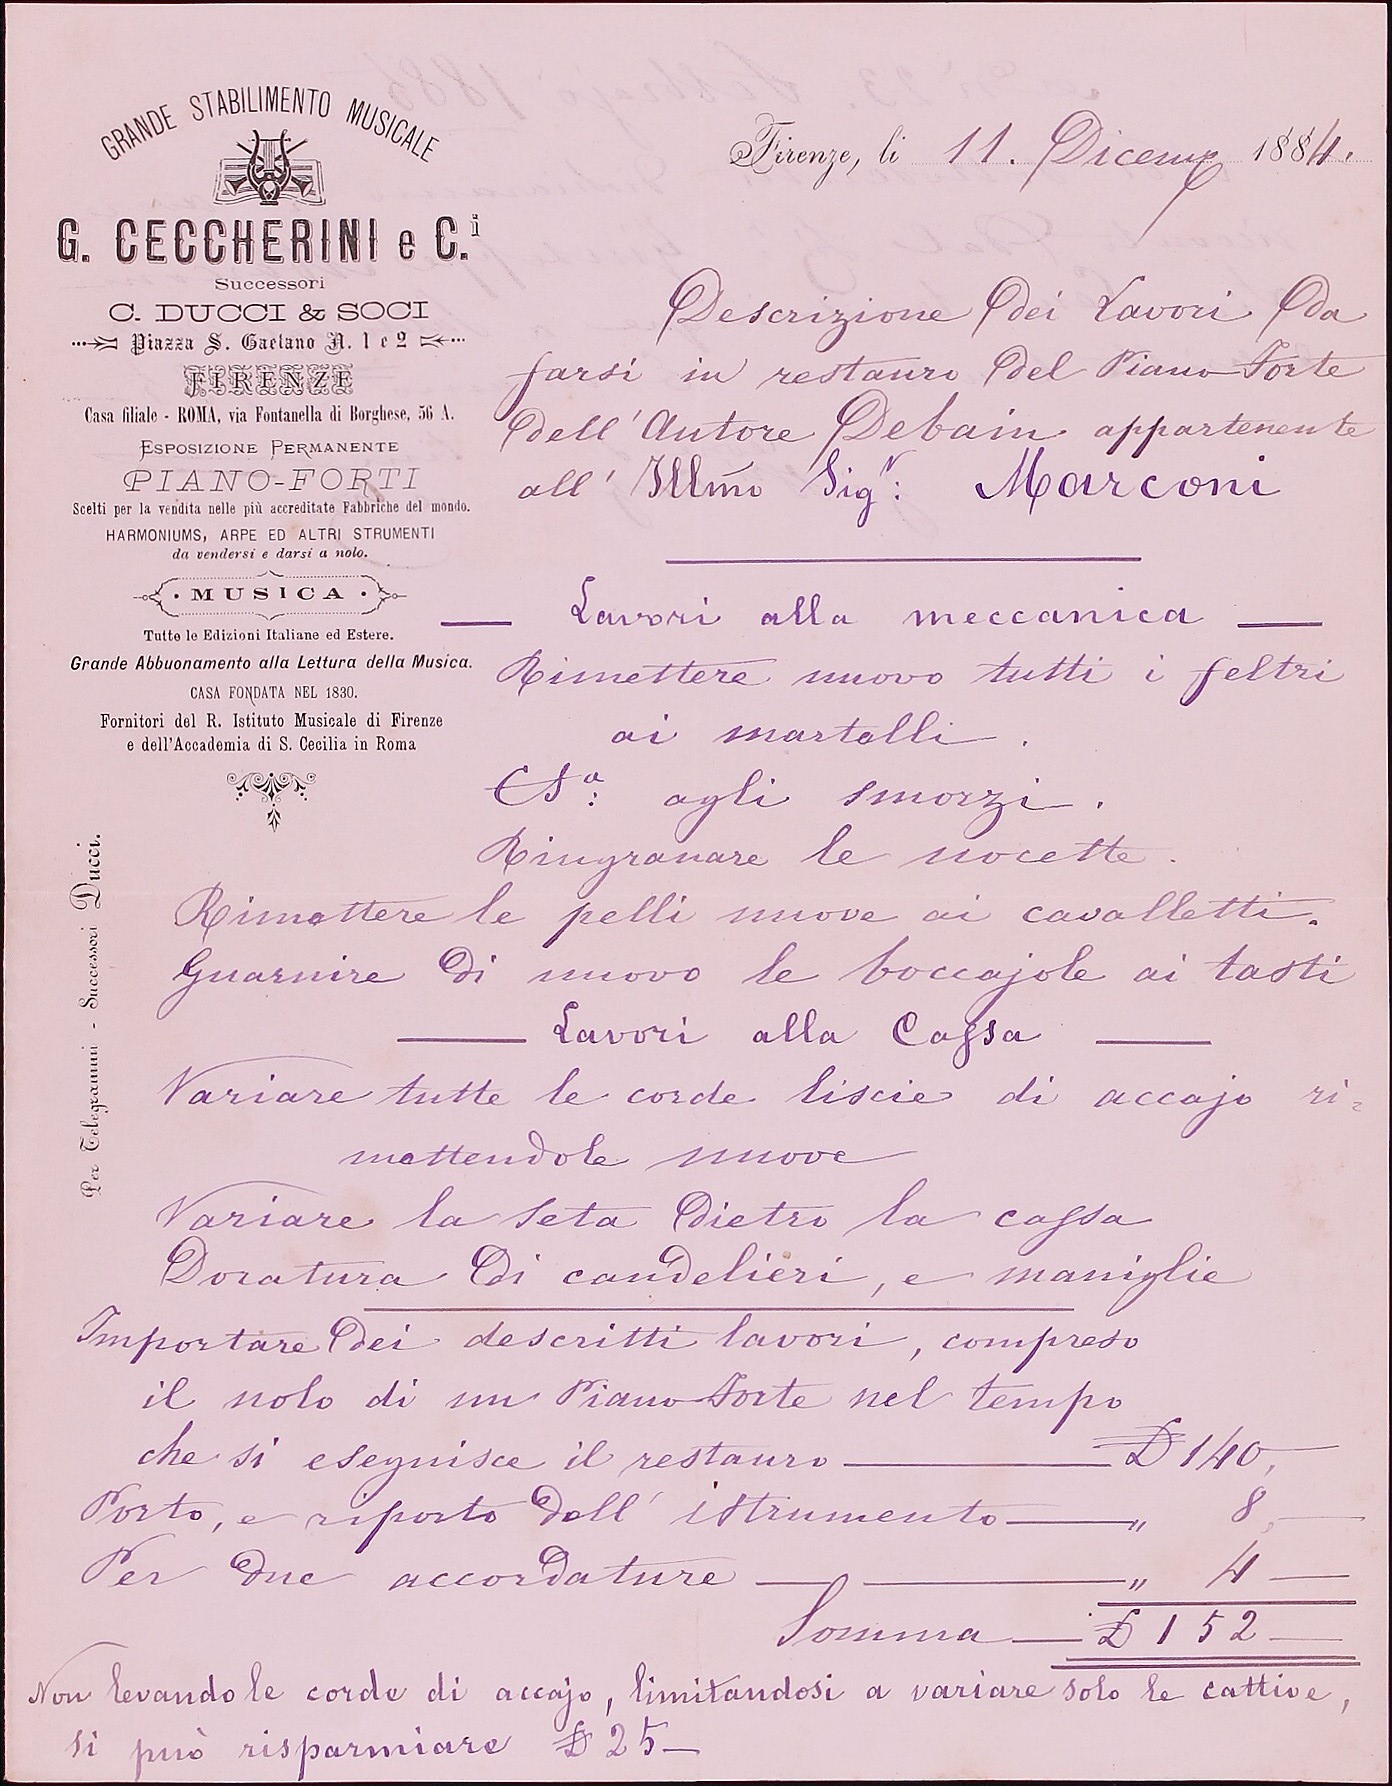 GRANDE STABILIMENTO MUSICALE
G. CECCHERINI e C.i
Successori
C. DUCCI & SOCI
Piazza S. Gaetano N. 1 e 2
FIRENZE
Casa filiale - ROMA, via Fontanella di Borghese, 56 A.
ESPOSIZIONE PERMANENTE
PIANO-FORTI
Scelti per la vendita nelle più accreditate Fabbriche del mondo.
HARMONIUMS, ARPE ED ALTRI STRUMENTI
da vendersi e darsi a nolo.
· MUSICA ·
Tutte le Edizioni Italiane ed Estere.
Grande Abbuonamento alla Lettura della Musica.
CASA FONDATA NEL 1830.
Fornitori del R. Istituto Musicale di Firenze
e dell'Accademia di S. Cecilia in Roma
Per Telegrammi - Successori Ducci.
Firenze, li 11. Dicem 1884.
Descrizione dei Lavori da
farsi in restauro del Piano-Forte
dell' Autore Debain appartenente
all' Illmo Sigr: Marconi
Lavori alla meccanica
Rimettere nuovo tutti i feltri
ai martelli.
Da: agli smorzi.
Ringranare le nocette.
Rimettere le pelli nuove ai cavalletti.
Guarnire di nuovo le boccajole ai tasti
Lavori alla Cassa
Variare tutte le corde liscie di accajo ri=
mettendole nuove
Variare la seta dietro la cassa
Doratura di candelieri, e maniglie
Importare dei descritti lavori, compreso
il nolo di un Piano-Forte nel tempo
che si eseguisce il restauro £ 140,
Porto, e riporto dell' istrumento " 8,
Per due accordature " 4
Somma £ 152
Non levando le corde di accajo, limitandosi a variare solo le cattive,
si può risparmiare £ 25